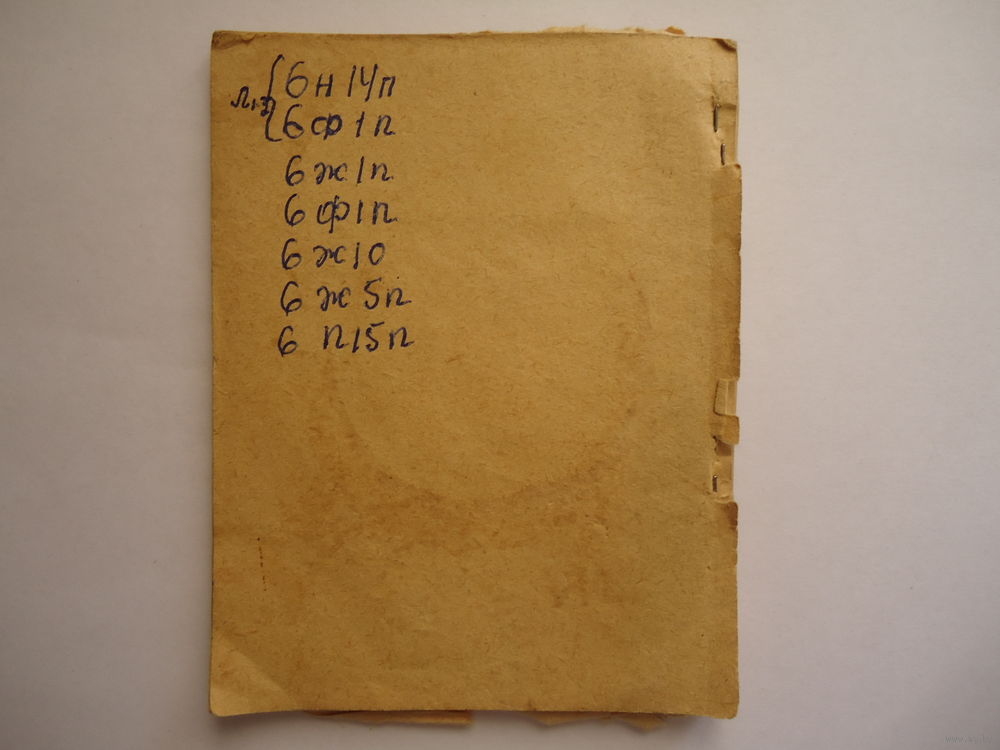 6н14п
6ф1п
6ж1п
6ф1п
6ж10
6ж5п
6п15п